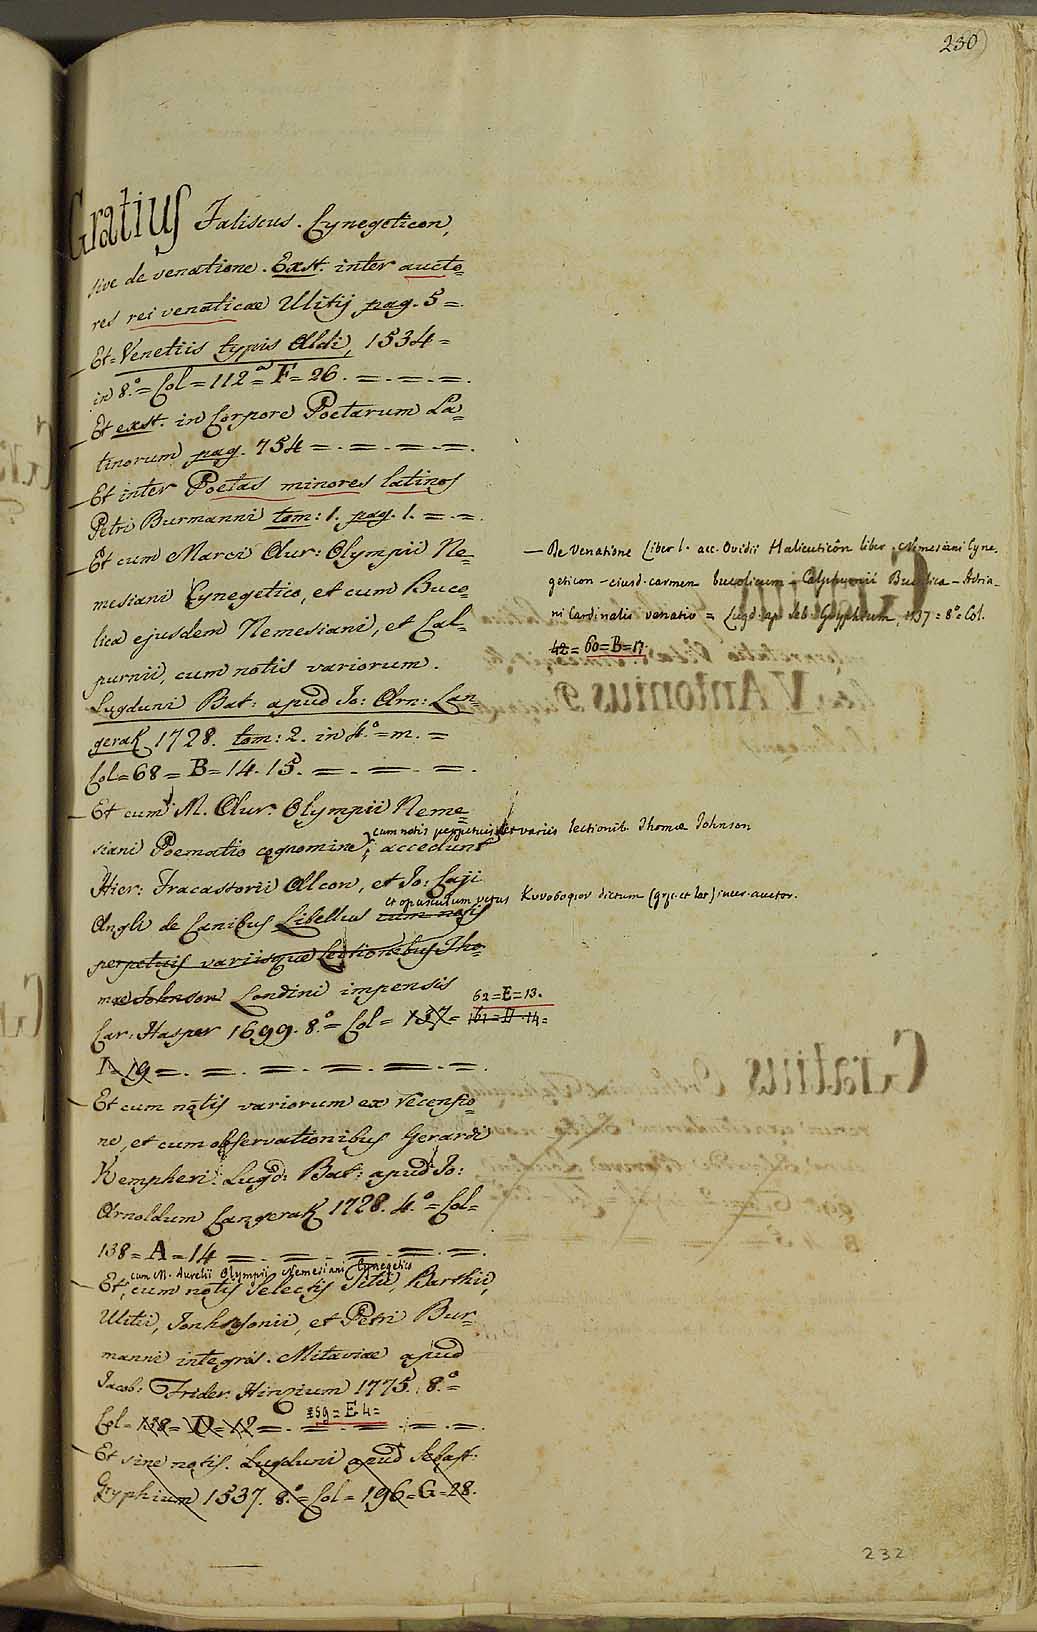 230
Gratius Faliscus. Cynegeticon,
sive de venatione. Exst. inter aucto=
res rei venaticae Ulitij pag. 5 =.
Et = Venetiis typis Aldi, 1534 =
in 8.° = Col = 112 = F = 26. = . = . = .
Et exst. in Corpore Poetarum La=
tinorum pag. 754 = . = . = . = .
Et inter Poetas minores latinos
Petri Burmanni tom: 1. pag. 1. = . = .
Et cum Marci Aur: Olympii Ne=
mesiani Cynegetico, et cum Buco=
lica ejusdem Nemesiani, et Cal=
purnii, cum notis variorum.
Lugduni Bat: apud Jo: Arn: Lan=
gerak 1728. tom: 2. in 4.° = m. =
Col = 68 = B = 14. 15. = . = . = .
Et cum M. Aur: Olympii Neme=
cum notis perpetuis et variis lectionib. Thomæ Johnson
siani Poematio cognomine; accedunt
Hier: Fracastorii Alcon, et Jo: Caji
et opusculum vetus Κυνοσοφιον dictum (gr. et lat) incer. auctor.
Angli de Canibus Libellus cum notis
perpetuis variisque Lectionibus Tho=
mæ Johnson Londini impensis
62 = E = 13.
Car: Hasper 1699. 8.° = Col = 137 = 161 = D . 14 =
I = 19 = . = . = . = . = . = .
Et cum notis variorum ex recensio=
ne, et cum observationibus Gerardi
Kempheri. Lugd: Bat: apud Jo:
Arnoldum Langerak 1728. 4.° = Col =
138 = A = 14 = . = . = . = . = .
cum M. Aurelii Olympii Nemesiani Cynegetico
Et, cum notis selectis Titii, Barthii,
Ulitii, Jonhsonii, et Petri Bur=
manni integris. Mitaviae apud
Jacob: Frider. Hinzium 1775. 8.° =
159 = E 4 =
Col = 138 = D = 12 = . = . = . = . = .
Et sine notis. Lugduni apud Sebast:
Gryphium 1537. 8.° = Col = 196 = G = 28.
— De Venatione Liber 1. acc. Ovidii Halieuticôn liber. Nemesiani Cyne-
geticon - eiusd. carmen bucolicum - Calphurnii Bucolica - Adria-
ni Cardinalis venatio = Lugd. ap. Seb. Gryphium, 1537 = 8.° Col.
42 = 60 = B = 17
232